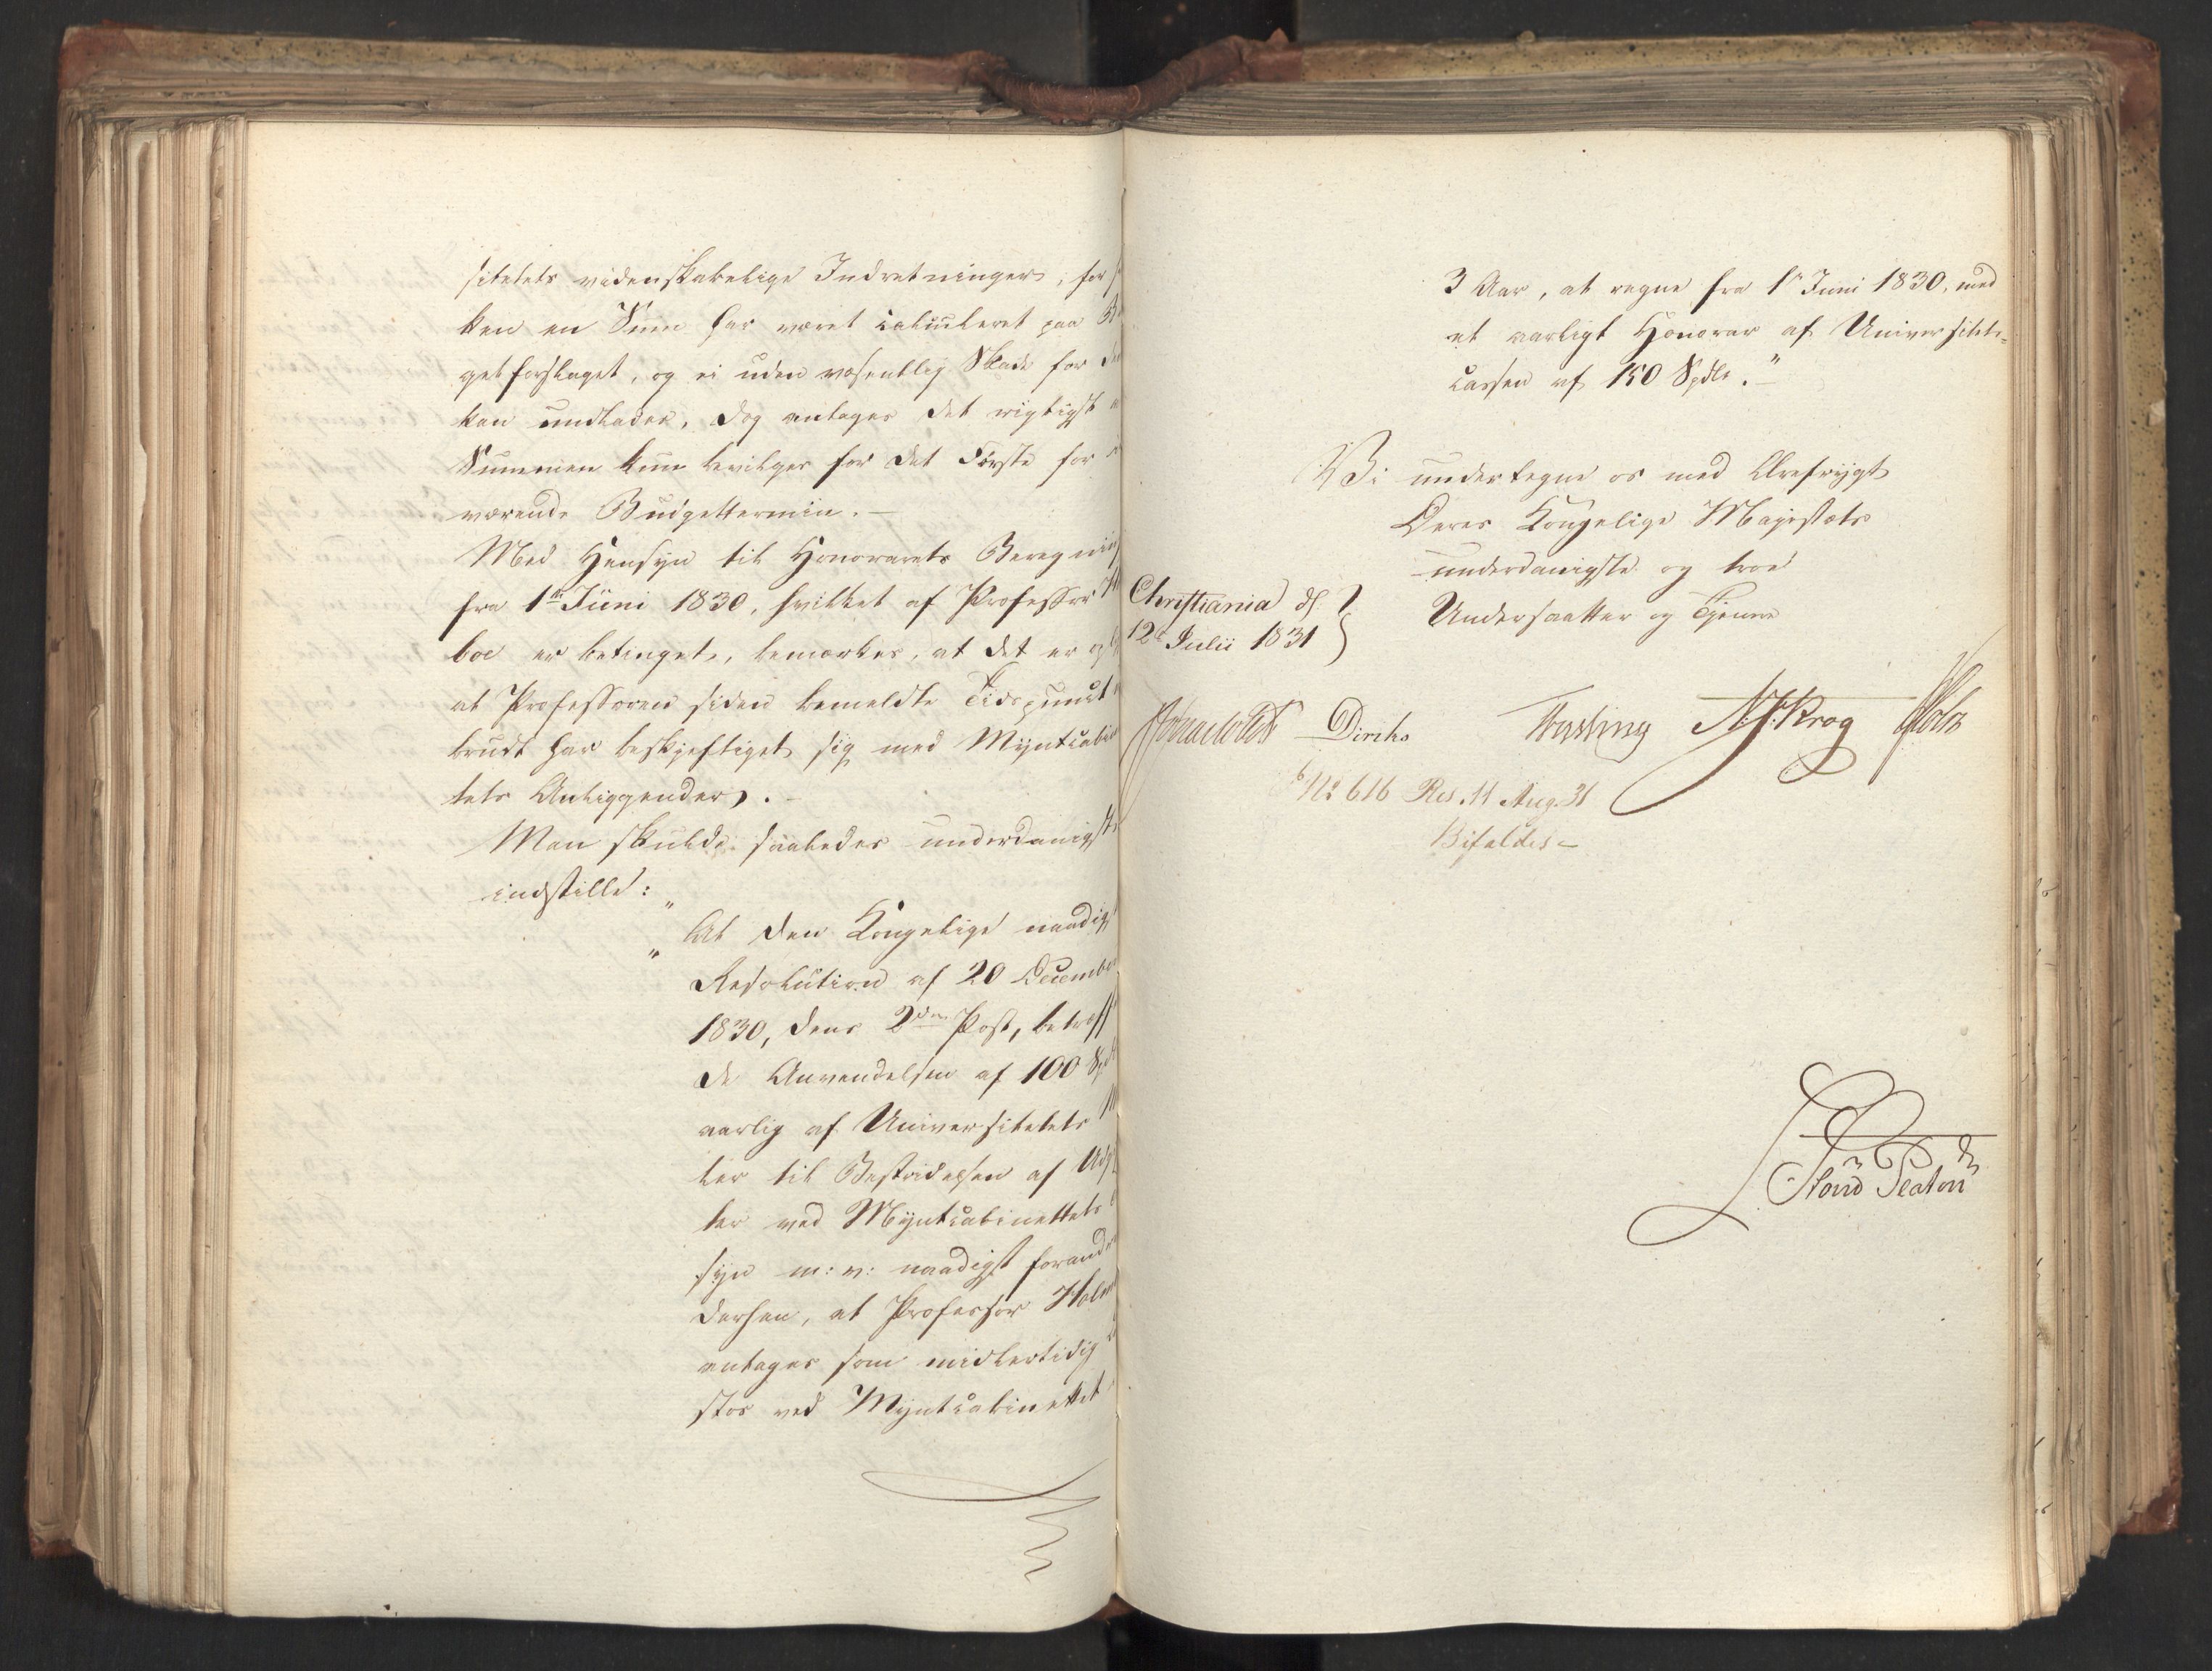 sitetets videnskabelige Indretninger, for
ken en Sum har været calculeret paa
getforslaget, og ei uden væsentlig Skade for
kan undlades, dog antages det rigtigst
Summen kun bevilges for det Første for
værende Budgettermin.—
Med Hensyn til Honorarets Beregning
fra 1ste Juni 1830, hvilket af Professor
boe er betinget, bemærkes, at det er
at Professoren siden bemeldte Tidspunct
brudt har beskjeftiget sig med Myntcabi
tets Anliggender.—
Man skulde saaledes underdanigst
indstille:
"At den Kongelige naadigst
"Resolution af 20 December
1830, dens 2den Post, betreff
de Anvendelsen af 100 Spd
aarlig af Universitetets
ler til Bestridelsen af Udgif
ter ved Myntcabinettets
syn m: v: naadigst forand
derhen, at Professor Holm
antages som midlertidig
stos ved Myntcabinettet
3 Aar, at regne fra 1ste Juni 1830, med
et aarligt Honorar af Universitets-
cassen af 150 Spdlr."—
Vi undertegne os med Ærefrygt
Deres Kongelige Majestæts
underdanigste og troe
Undersaatter og Tjenere
Christiania d.
12te Julii 1831
Diriks Fasting N. J. Krog Holst
No 616 Res. 11 Aug. 31
Bifaldes—